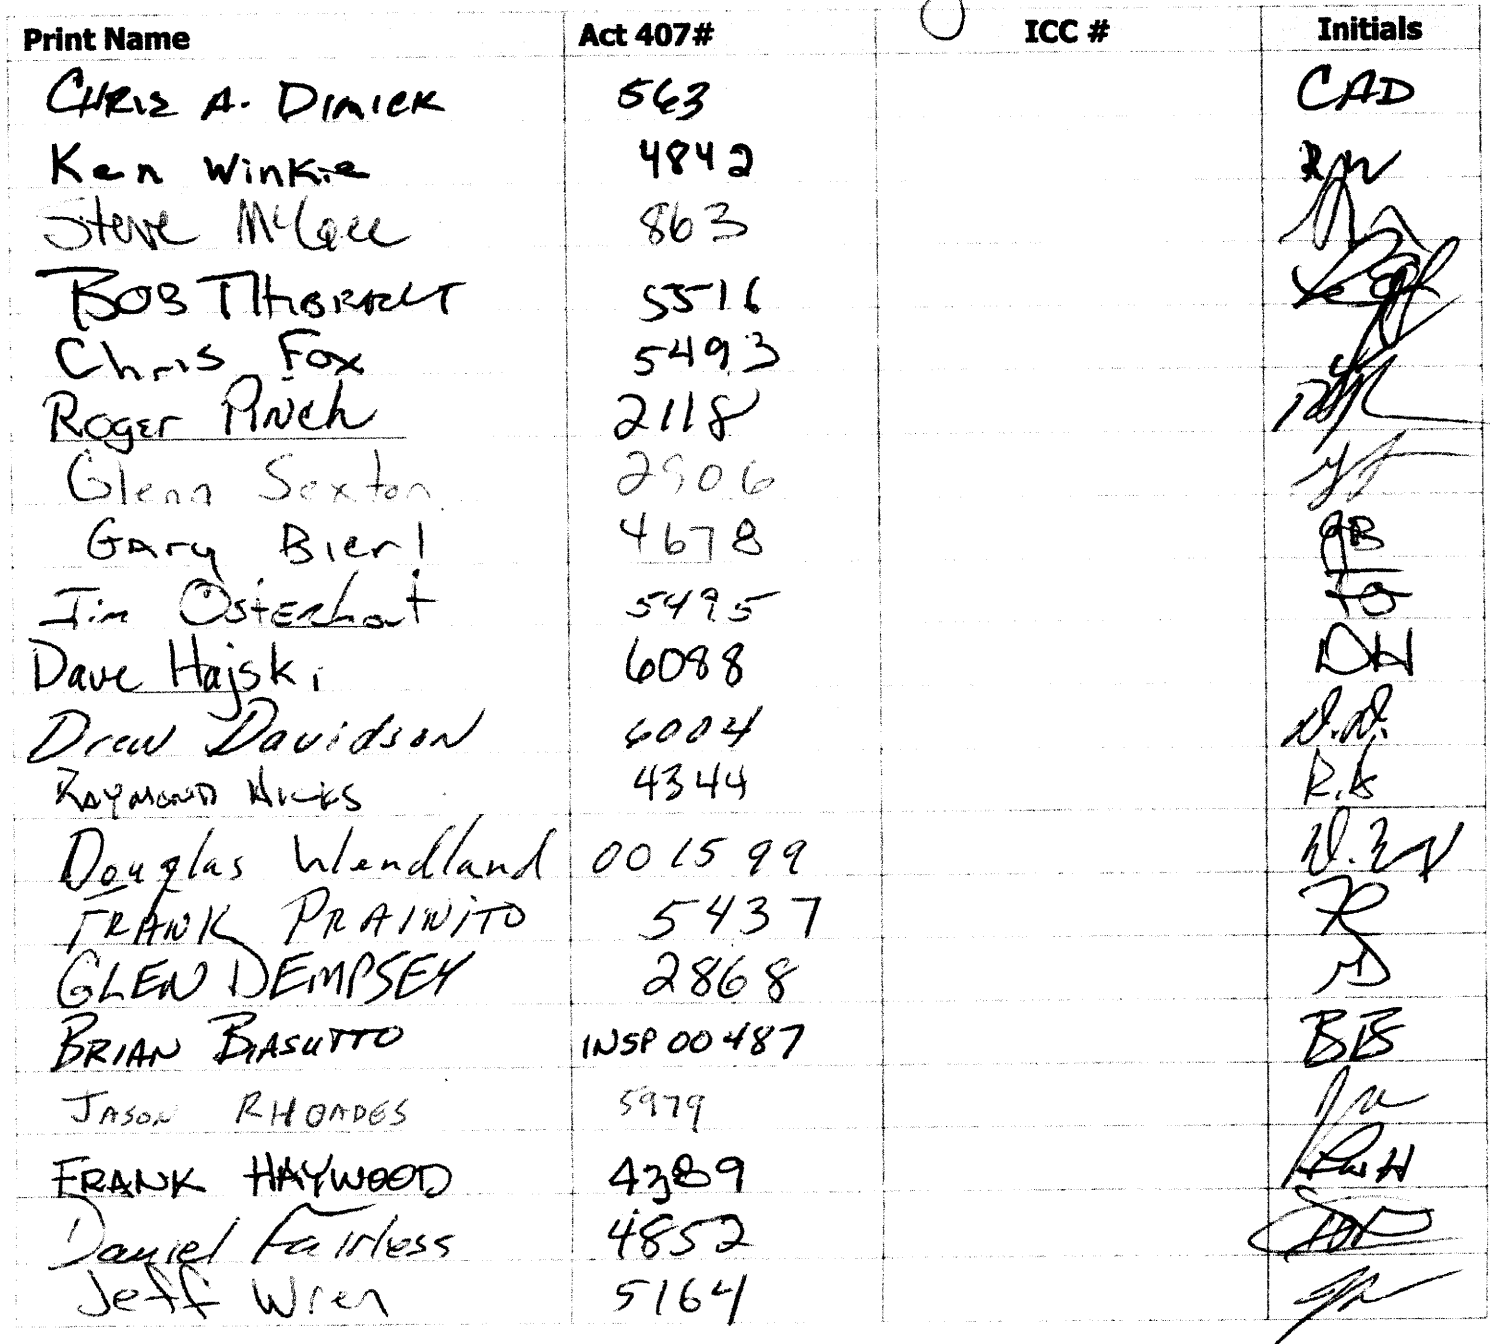 Print Name Act 407# ICC # Initials
CHRIS A. DIMICK 563 CAD
Ken Winkie 4842
Steve McGee 863
BOB THIBEAULT 5516
Chris Fox 5493
Roger Pinch 2118
Glenn Sexton 2906
Gary Bierl 4678 GB
Jim Osterhout 5495 JO
Dave Hajski 6088 DH
Drew Davidson 6004 D.D.
RAYMOND HICKS 4344
Douglas Wendland 001599
FRANK PRAINITO 5437 FP
GLEN DEMPSEY 2868 GD
BRIAN BIASUTTO INSP 00487 BB
JASON RHOADES 5979
FRANK HAYWOOD 4389
Daniel Fairless 4852
Jeff Wren 5164